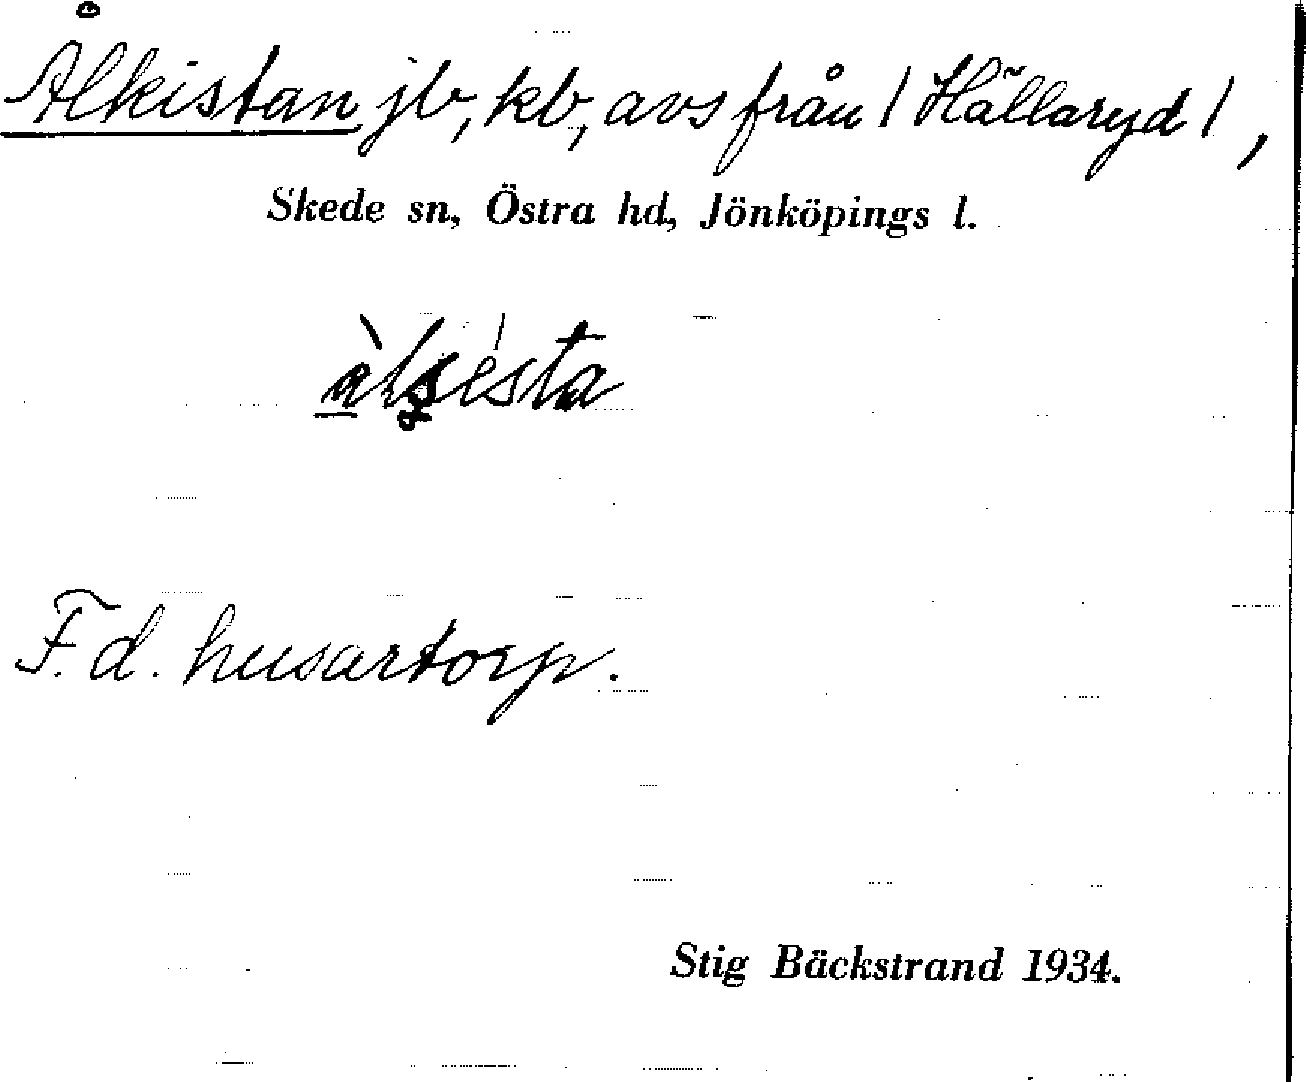 Ålkistan jb, kb, avs från / Hällaryd /,
Skede sn, Östra hd, Jönköpings l.
F.d. husartorp.
Stig Bäckstrand 1934.